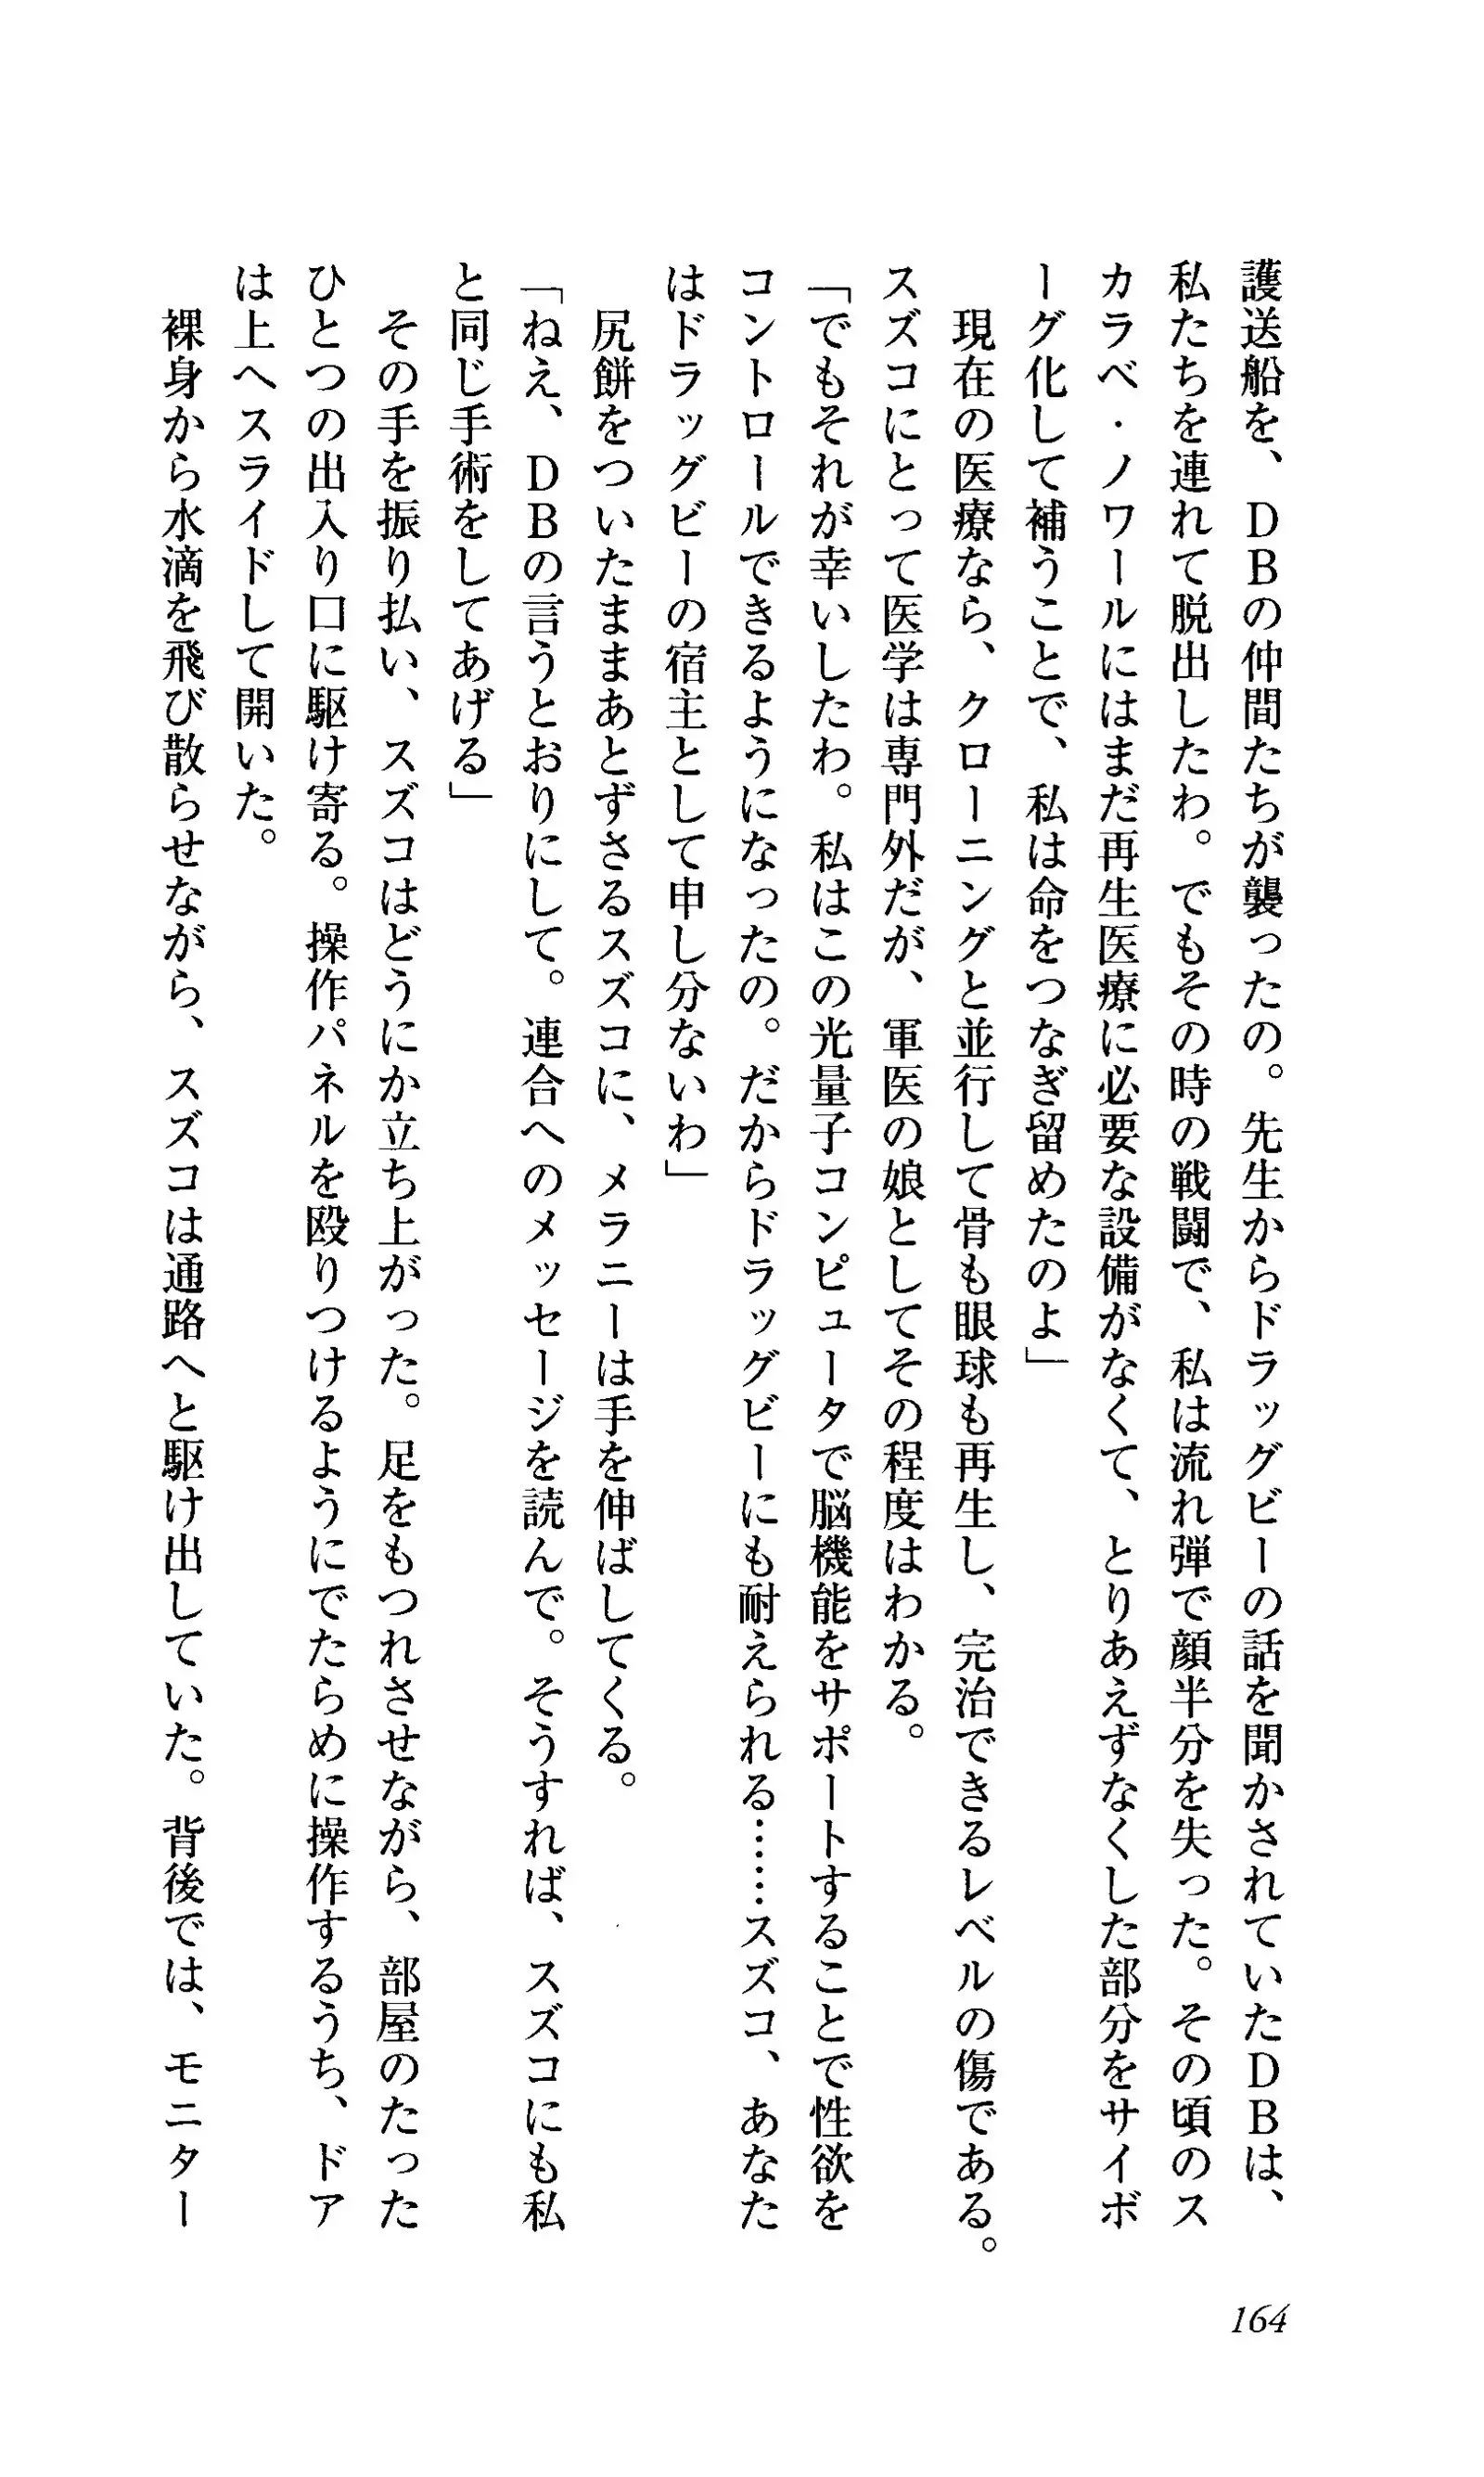 護送船を、ＤＢの仲間たちが襲ったの。先生からドラッグビーの話を聞かされていたＤＢは、
私たちを連れて脱出したわ。でもその時の戦闘で、私は流れ弾で顔半分を失った。その頃のス
カラベ・ノワールにはまだ再生医療に必要な設備がなくて、とりあえずなくした部分をサイボ
ーグ化して補うことで、私は命をつなぎ留めたのよ」
　現在の医療なら、クローニングと並行して骨も眼球も再生し、完治できるレベルの傷である。
スズコにとって医学は専門外だが、軍医の娘としてその程度はわかる。
「でもそれが幸いしたわ。私はこの光量子コンピュータで脳機能をサポートすることで性欲を
コントロールできるようになったの。だからドラッグビーにも耐えられる……スズコ、あなた
はドラッグビーの宿主として申し分ないわ」
　尻餅をついたままあとずさるスズコに、メラニーは手を伸ばしてくる。
「ねえ、ＤＢの言うとおりにして。連合へのメッセージを読んで。そうすれば、スズコにも私
と同じ手術をしてあげる」
　その手を振り払い、スズコはどうにか立ち上がった。足をもつれさせながら、部屋のたった
ひとつの出入り口に駆け寄る。操作パネルを殴りつけるようにでたらめに操作するうち、ドア
は上へスライドして開いた。
　裸身から水滴を飛び散らせながら、スズコは通路へと駆け出していた。背後では、モニター
164